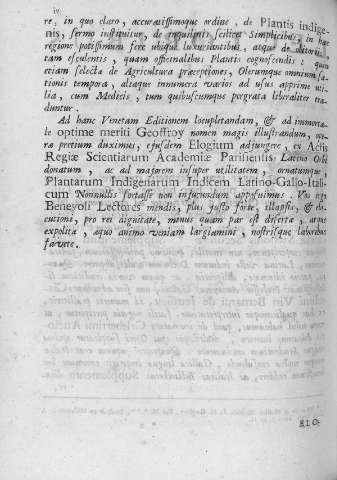 iv
re, in quo claro, accuratissimoque ordine, de Plantis indige-
nis, sermo instituitur, de inquilinis scilicet Simplicibus, in hac
regione potissimum fere ubique luxuriantibus, atque de olitoriis,
tam esculentis, quam officinalibus Plantis cognoscendis: quin
etiam selecta de Agricultura præceptiones, Olerumque omnium sa-
tionis tempora, aliaque innumera variis ad usus apprime uti-
lia, cum Medicis, tum quibuscumque pergrata liberaliter tra-
duntur.
Ad hanc Venetam Editionem locupletandam, & ad immorta-
le optime meriti Geoffroy nomen magis illustrandum, ope-
ræ pretium duximus, ejusdem Elogium adjungere, ex Actis
Regiæ Scientiarum Academiæ Parisiensis Latino Orbi
donatum, ac ad majorem insuper utilitatem, ornatumque,
Plantarum Indigenarum Indicem Latino-Gallo-Itali-
cum Nonnullis fortasse non injucundum apposuimus. Vos
Benevoli Lectores mendis, plus justo forte, illapsis, & elo-
cutioni, pro rei dignitate, minus quam par est disertæ, atque
expolitæ, æquo animo veniam largiamini, nostrisque laboribus
favete.
ELO-